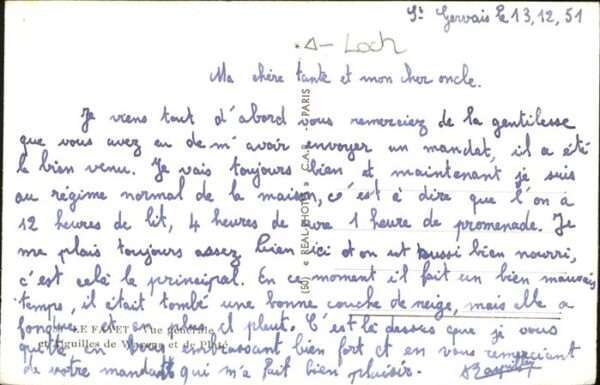 St Gervais le 13,12,51
Loch
Ma chère tante et mon cher oncle.
Je viens tout d'abord vous remerciez de la gentilesse
que vous avez eu de m'avoir envoyer un mandat, il a été
le bien venu. Je vais toujours bien et maintenant je suis
au régime normal de la maison, c'est à dire que l'on a
12 heures de lit, 4 heures de cure 1 heure de promenade. Je
me plais toujours assez bien ici et on est aussi bien nourri,
c'est celà le principal. En ce moment il fait un bien mauvais
temps, il était tombé une bonne couche de neige, mais elle a
fondue et en plus il pleut. C'est là dessus que je vous
quitte en vous embrassant bien fort et en vous remerciant
de votre mandat qui m'a fait bien plaisir.
LE FAYET - Vue générale
et Aiguilles de Varens et de Platé
(50) « REAL-PHOTO » C.A.P. - PARIS